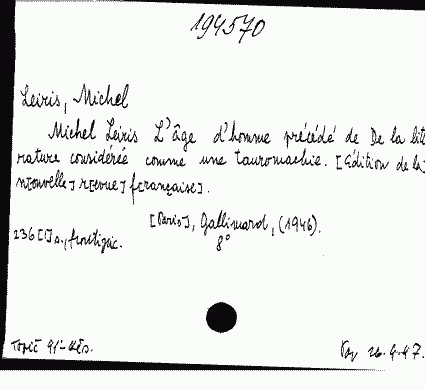 194570
Leiris, Michel
Michel Leiris L'âge d'homme précédé de De la litté
rature considérée comme une tauromachie. [Édition de la]
n[ouvelle] r[evue] f[rançaise].
[Paris], Gallimard, (1946).
236 [1] p., frontispic. 8°
26.4.47.